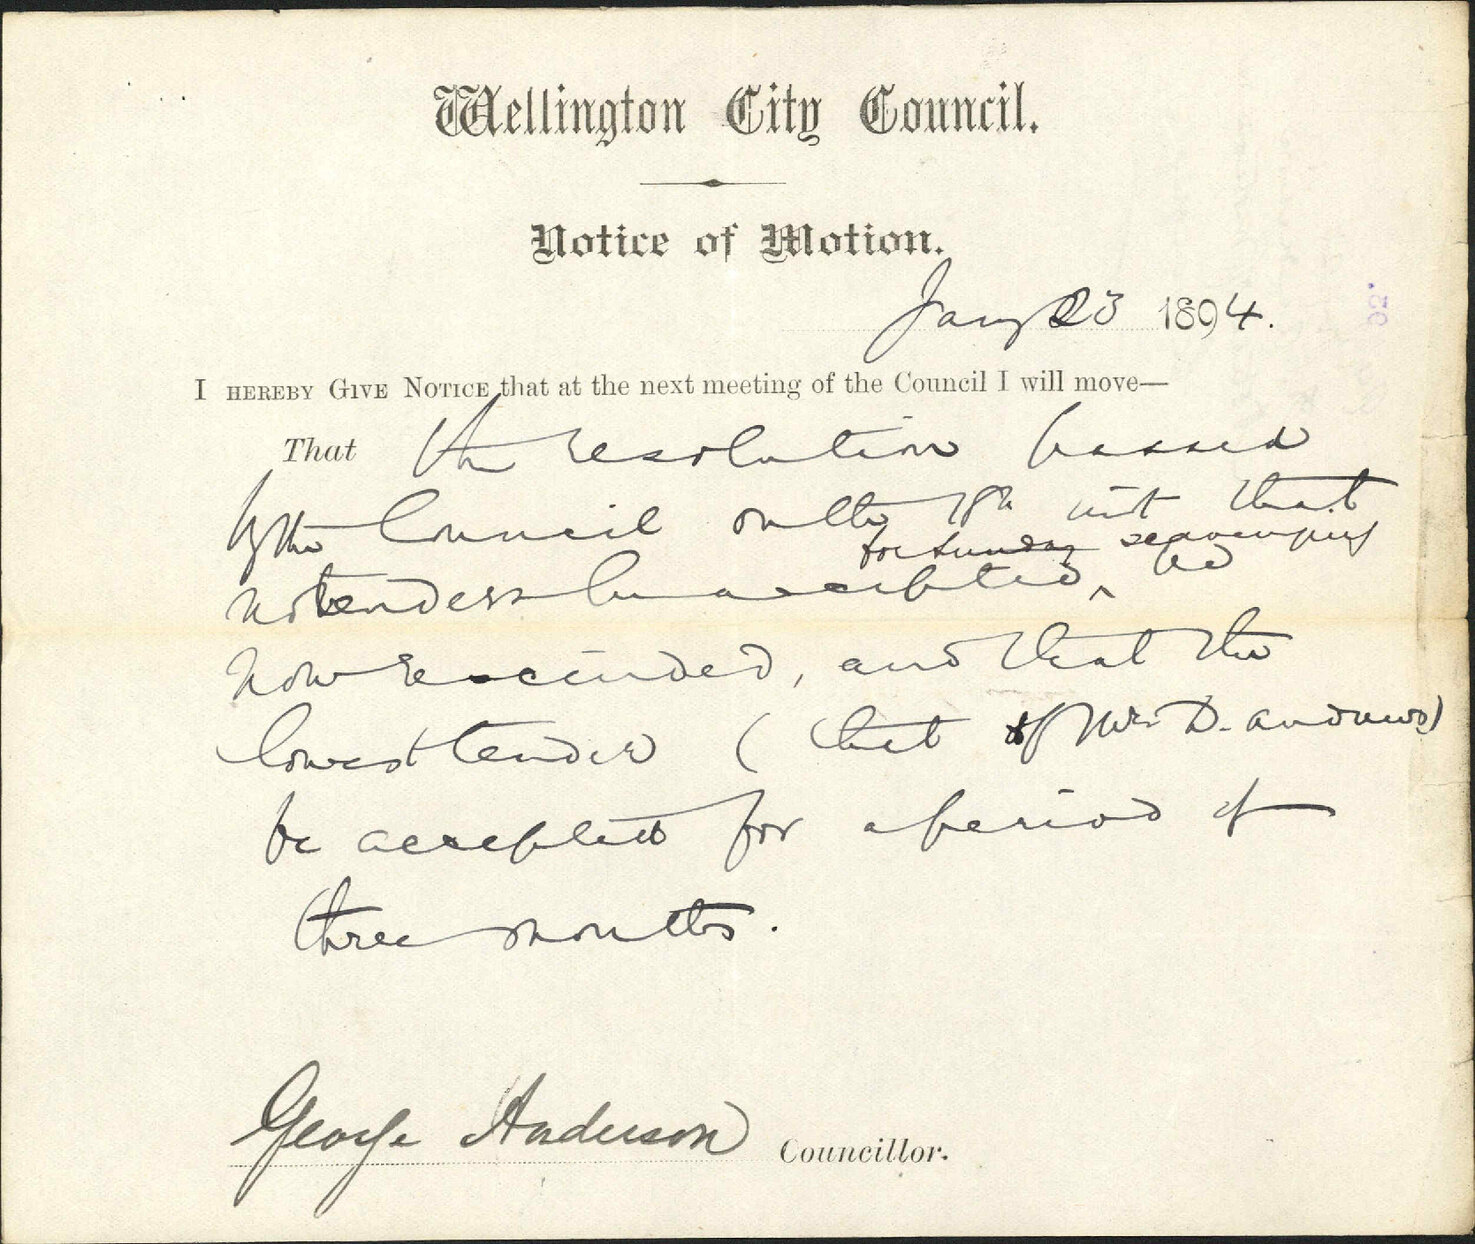 Wellington City Council.
Notice of Motion.
Jany 23 1894.
I HEREBY GIVE NOTICE that at the next meeting of the Council I will move—
That the resolution passed
by the Council on the inst that
for Sunday scavenging
no tenders be accepted, ^ be
now rescinded, and that the
lowest tender (that of Mr D. Andrews)
be accepted for a period of
three months.
George Anderson Councillor.